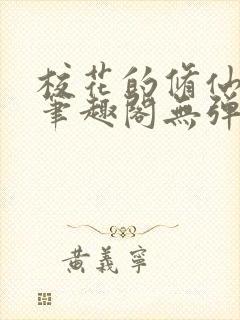 校花的脩仙
筆趣閣無彈
黃義寧